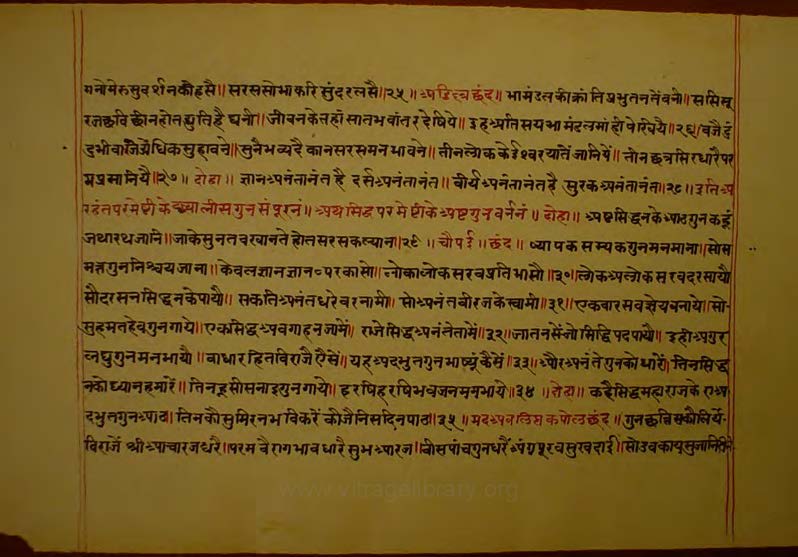 मनोमेरुसुदर्शनकौहसै॥सरससोभाकरिसुंदरलसै॥२५॥पडित्वछंद॥भामंडलकीक्रांतिप्रभुतनतेंवनी॥ससिसू
रजछविछीनहोतद्युतिहैघनी॥जीवनकेतहांसातभवांतरदेषिये॥इहअतिसयभामंडलमांहीपेषिये॥२६॥वजैदुं
दुभीवाजेअधिकसुहावने॥सुनैभव्यदैकानसरसमनभावने॥तीनलोककेईश्वरयातेंजानियै॥तीनछत्रसिरधारैपर
मप्रमानियै॥२७॥दोहा॥ज्ञानअनंतानंतहैदर्सअनंतानंत॥वीर्यअनंतानंतहैसुरकअनंतानंत॥२८॥इतिअ
रहंतपरमेष्टीकेछ्यालीसगुनसंपूरनं॥अथसिद्धपरमेष्टीकेअष्टगुनवर्ननं॥दोहा॥अष्टसिद्धनकेआठगुनकहूं
जथारथजांनि॥जाकेसुनतवखानतेहोतसरसकल्यान॥२९॥चौपई॥छंद॥व्यापकसम्यकगुनमनमाना॥सोस
महागुननिश्चयजाना॥केवलज्ञानज्ञानपरकासो॥लोकालोकसरवप्रतिभासौ॥३०॥लोकअलोकसरवदरसायौ
सौदरसनसिद्धनकेपायौ॥सकतिअनंतधरेवरनामी॥सोअनंतवीरजकेस्वामी॥३१॥एकवारसवज्ञेयवनाये॥सो
सुहमतहेवगुनगाये॥एकसिद्धअवगाहनजामें॥राजेसिद्धअनंतेतामें॥३२॥जातनसेंजोसिद्धिपदपायौ॥इहीअगुर
लघुगुनमनभायौ॥वाधारहितविराजैऐसें॥यहअदभुतगुनभाष्यूंकैसें॥३३॥औरअनंतेगुनकोधारें॥तिनसिद्ध
नकोध्यानहमारें॥तिनकूसीसनाइगुनगायै॥हरषिहरषिभवजनमनभाये॥३४॥दोहा॥कहेसिद्धमहाराजकेएअ
दभुतगुनआठ॥तिनकौसुमिरनभविकरेंकीजैनिसदिनपाठ॥३५॥मदअवलिप्तकपोलछंद॥गुनछत्रिसकौलिये
विराजेंश्रीआचारजधरै॥परमवैरागभावधारैसुभआरज॥वीसपांचगुनधरैंअंगपूरवसुखदाई॥सोउवकायसुजानि
www.vitragelibrary.org